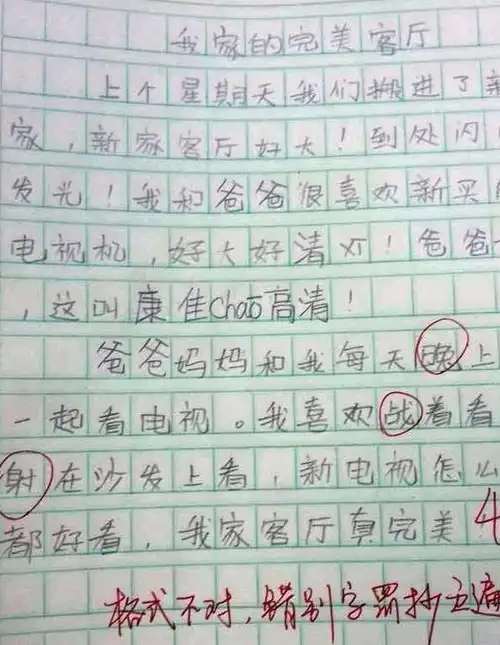 我家的完美客厅
上个星期天我们搬进了新
家，新家客厅好大！到处闪
发光！我和爸爸很喜欢新买
电视机，好大好清
！爸爸
，这叫康佳Chao高清！
爸爸妈妈和我每天晚上
一起看电视。我喜欢战着看
射在沙发上看，新电视怎么
都好看，我家客厅真完美
格式不对，错别字罚抄五遍